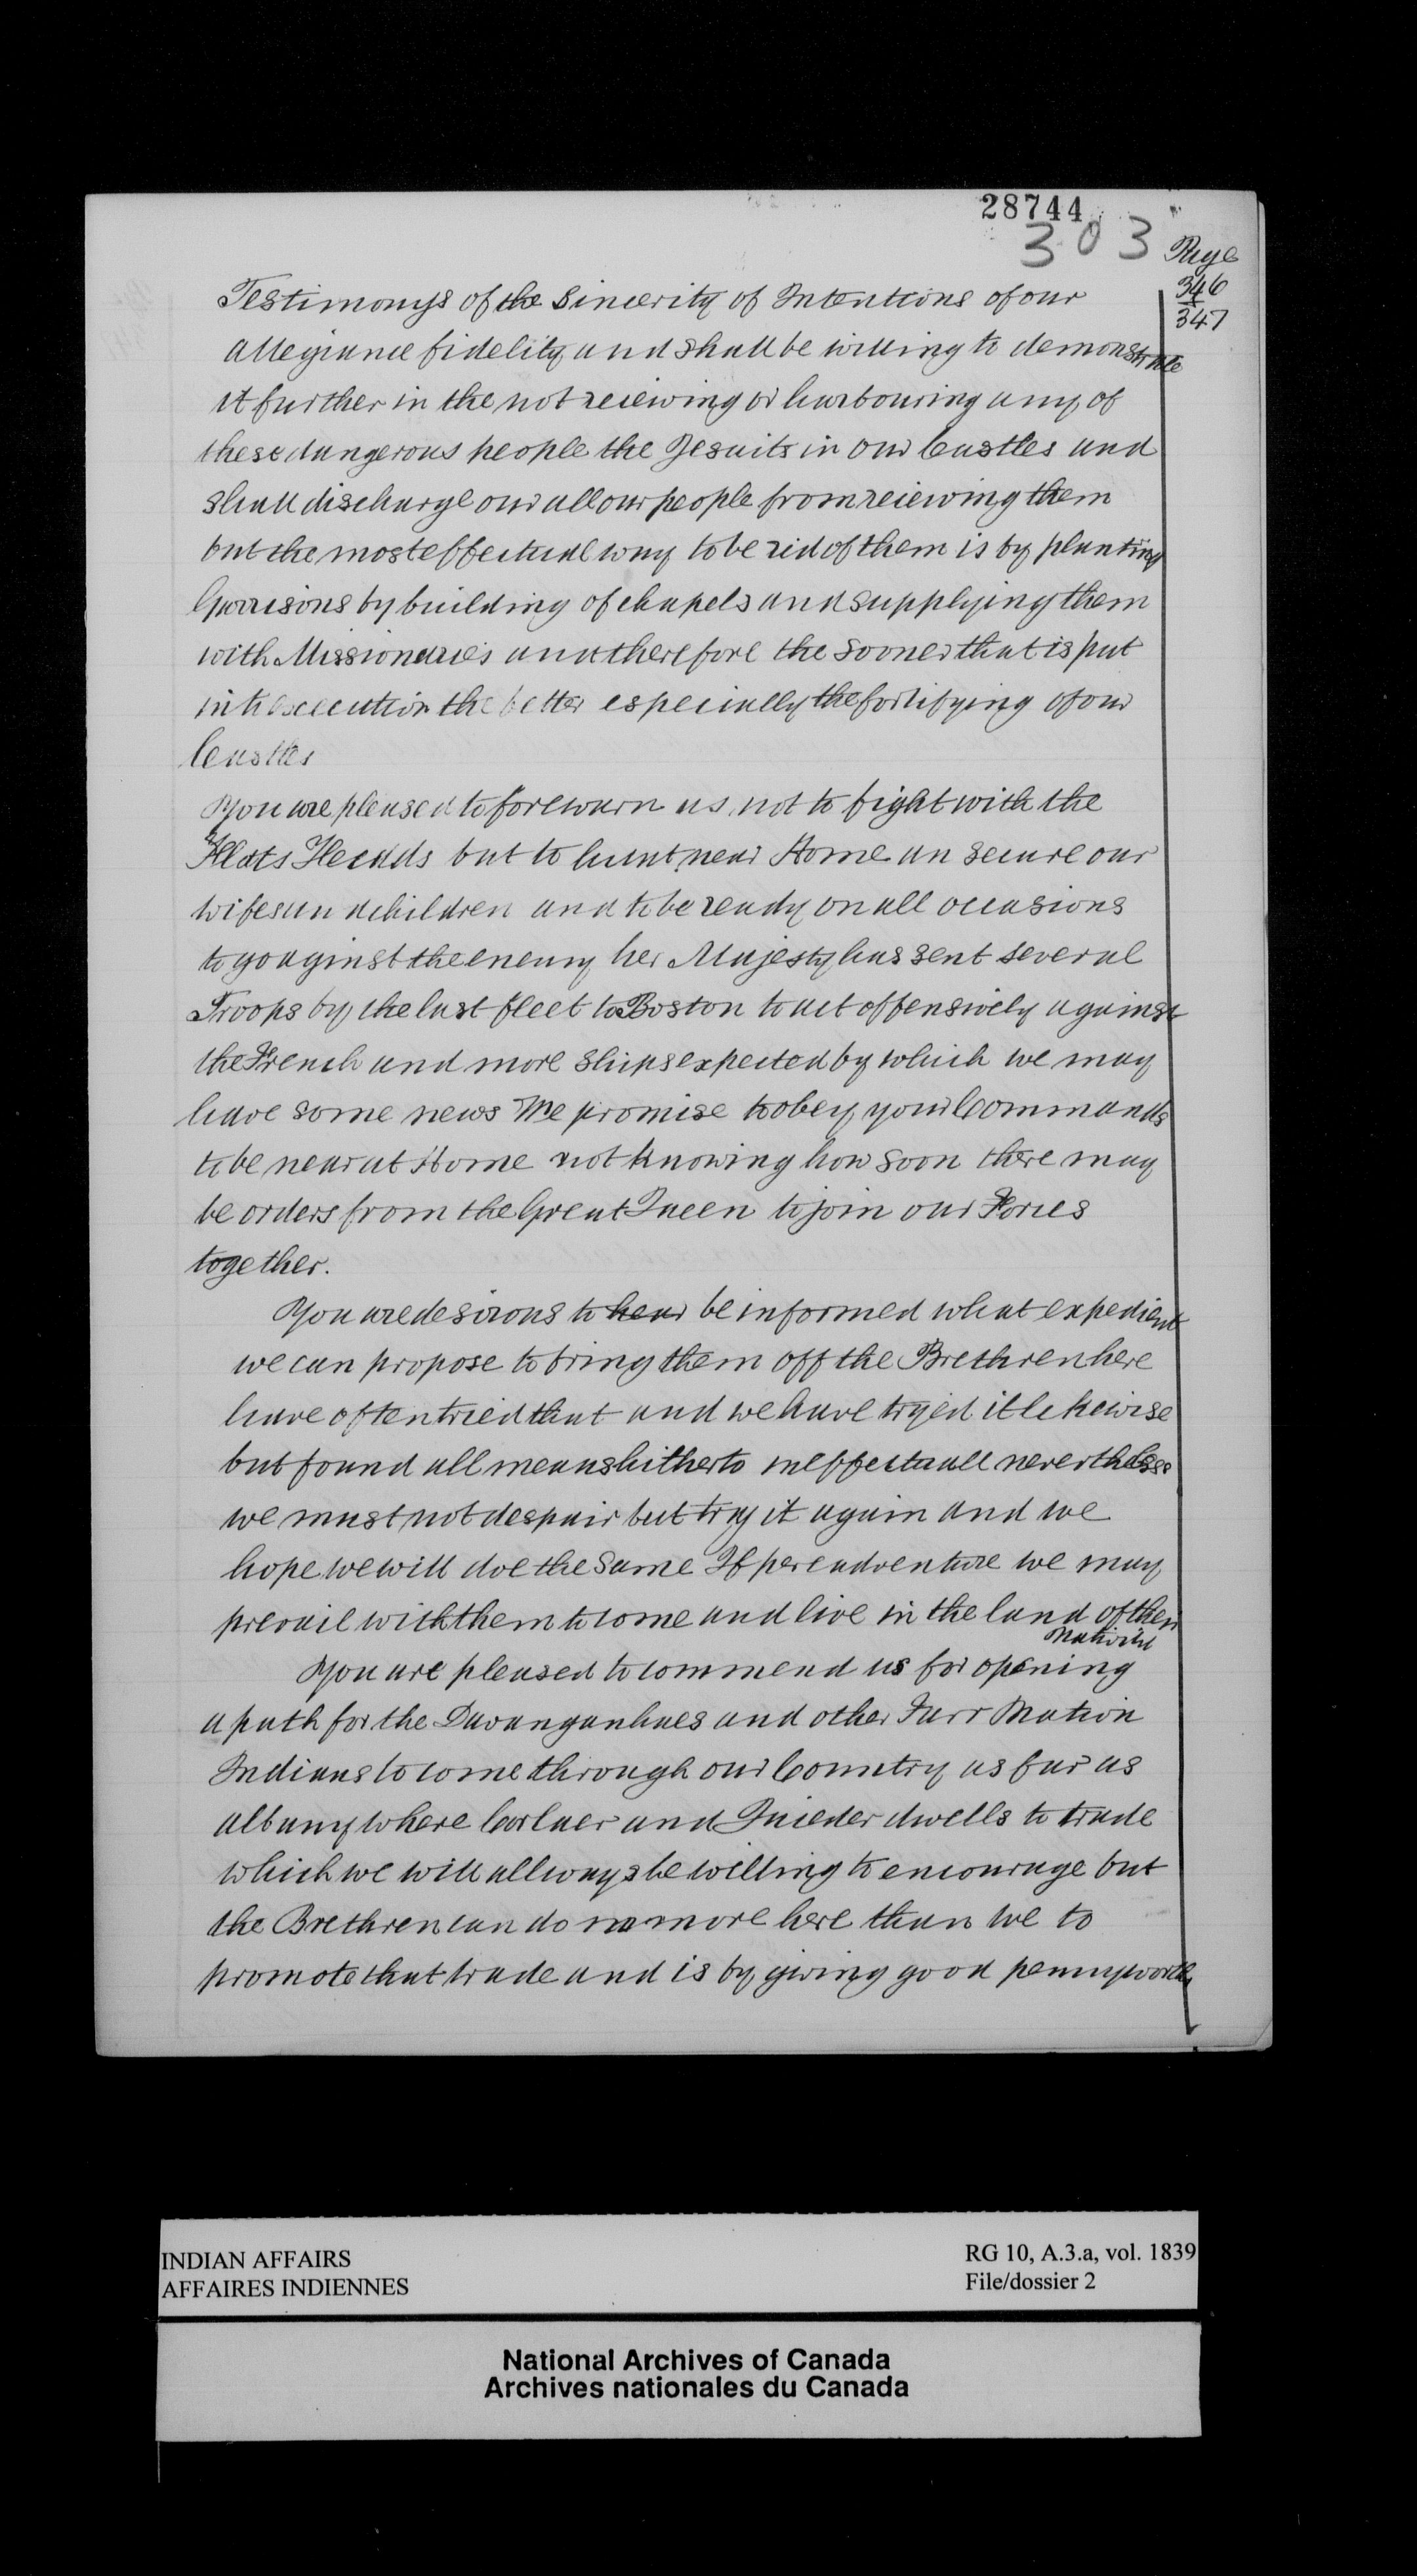 28744
303 Page
346
347
Testimonys of the Sincerity of Intentions of our
allegiance fidelity and shall be willing to demonstrate
it further in the not receiving or harbouring any of
these dangerous people the Jesuits in our Castles and
shall discharge our all our people from receiving them
but the most effectual way to be rid of them is by planting
Garrisons by building of chapels and supplying them
with Missionaries and therefore the sooner that is put
into execution the better especially the fortifying of our
Castles
You are pleased to forewarn us not to fight with the
Flatts Headds but to hunt near Home an secure our
wifes and children and to be ready on all occasions
to go aginst the enemy her Majesty has sent several
Troops by the last fleet to Boston to act offensively against
the French and more ships expected by which we may
have some news We promise to obey your Commands
to be near at Home not knowing how soon there may
be orders from the Great Queen to join our Forces
together.
You are desirous to hear be informed what expedient
we can propose to bring them off the Brethren here
have often tried that and we have tryed it likewise
but found all means hitherto ineffectuall nevertheless
we must not despair but try it again and we
hope we will doe the same If peradventure we may
prevail with them to come and live in the land of their
Nativity
You are pleased to commend us for opening
a path for the Davanganhaes and other Farr Nation
Indians to come through our Country as far as
albany where Corlaer and Quieder dwells to trade
which we will allways be willing to encourage but
the Brethren can do no more here than we to
promote that trade and is by giving good pennyworth
INDIAN AFFAIRS
AFFAIRES INDIENNES
RG 10, A.3.a, vol. 1839
File/dossier 2
National Archives of Canada
Archives nationales du Canada